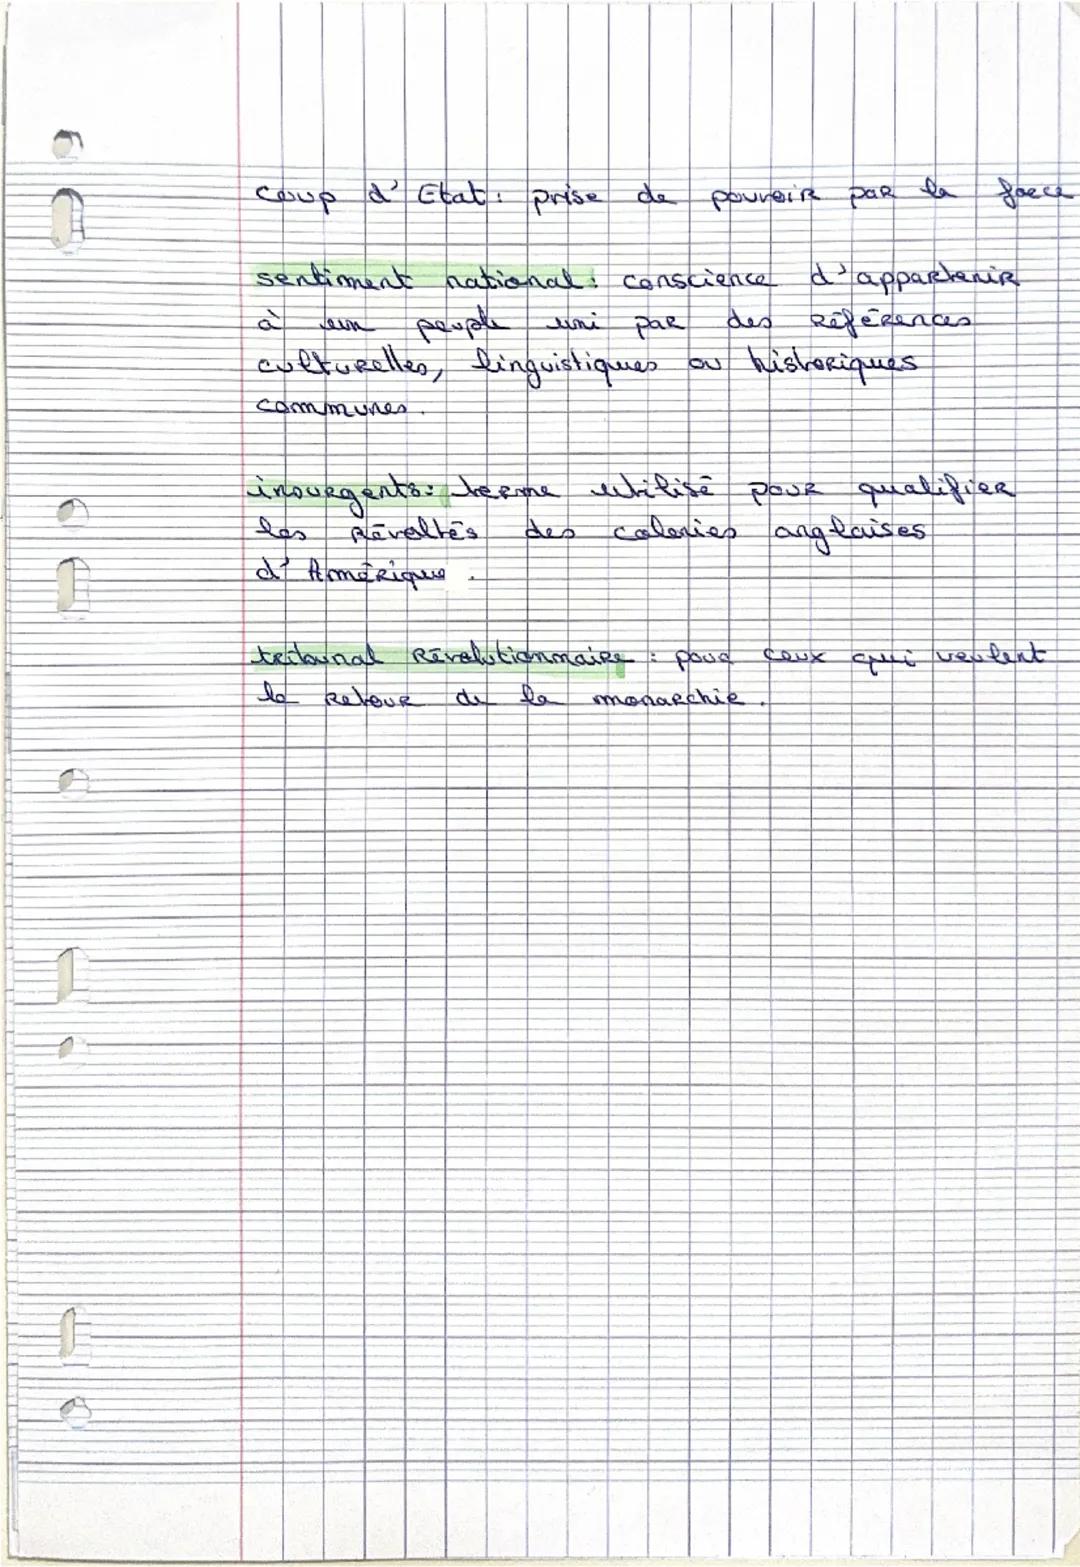 coup d'Etat : prise de pouvoir par la force
sentiment national : conscience d'appartenir
à un peuple uni par des références
culturelles, linguistiques ou historiques
communes.
insurgents : terme utilisé pour qualifier
les révoltés des colonies anglaises
d'Amérique.
tribunal révolutionnaire : pour ceux qui veulent
le retour de la monarchie.